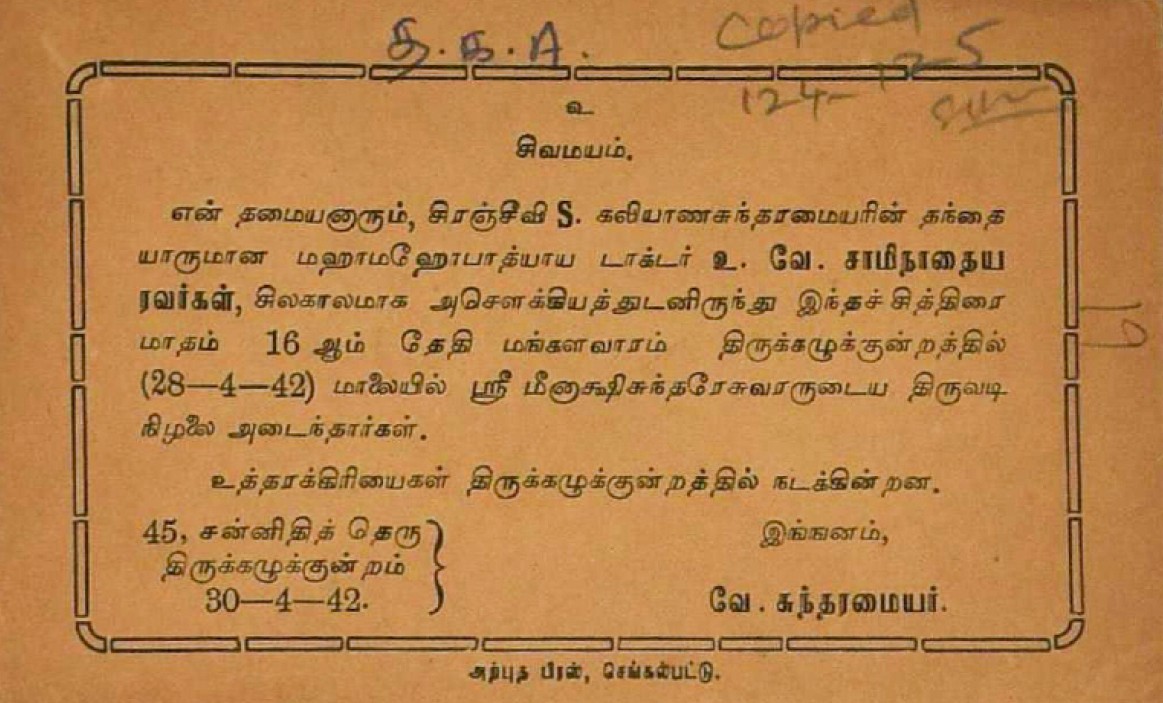 த.க.A.
Copied
124-12-5
உ
சிவமயம்.
என் தமையனாரும், சிரஞ்சீவி S. கலியாணசுந்தரமையரின் தந்தை
யாருமான மஹாமஹோபாத்யாய டாக்டர் உ. வே. சாமிநாதைய
ரவர்கள், சிலகாலமாக அசௌக்கியத்துடனிருந்து இந்தச் சித்திரை
மாதம் 16 ஆம் தேதி மங்களவாரம் திருக்கழுக்குன்றத்தில்
(28—4—42) மாலையில் ஸ்ரீ மீனாக்ஷிசுந்தரேசுவரருடைய திருவடி
நிழலை அடைந்தார்கள்.
உத்தரக்கிரியைகள் திருக்கழுக்குன்றத்தில் நடக்கின்றன.
45, சன்னிதித் தெரு
திருக்கழுக்குன்றம்
30—4—42.
இங்ஙனம்,
வே. சுந்தரமையர்.
அற்புத பிரஸ், செங்கல்பட்டு.